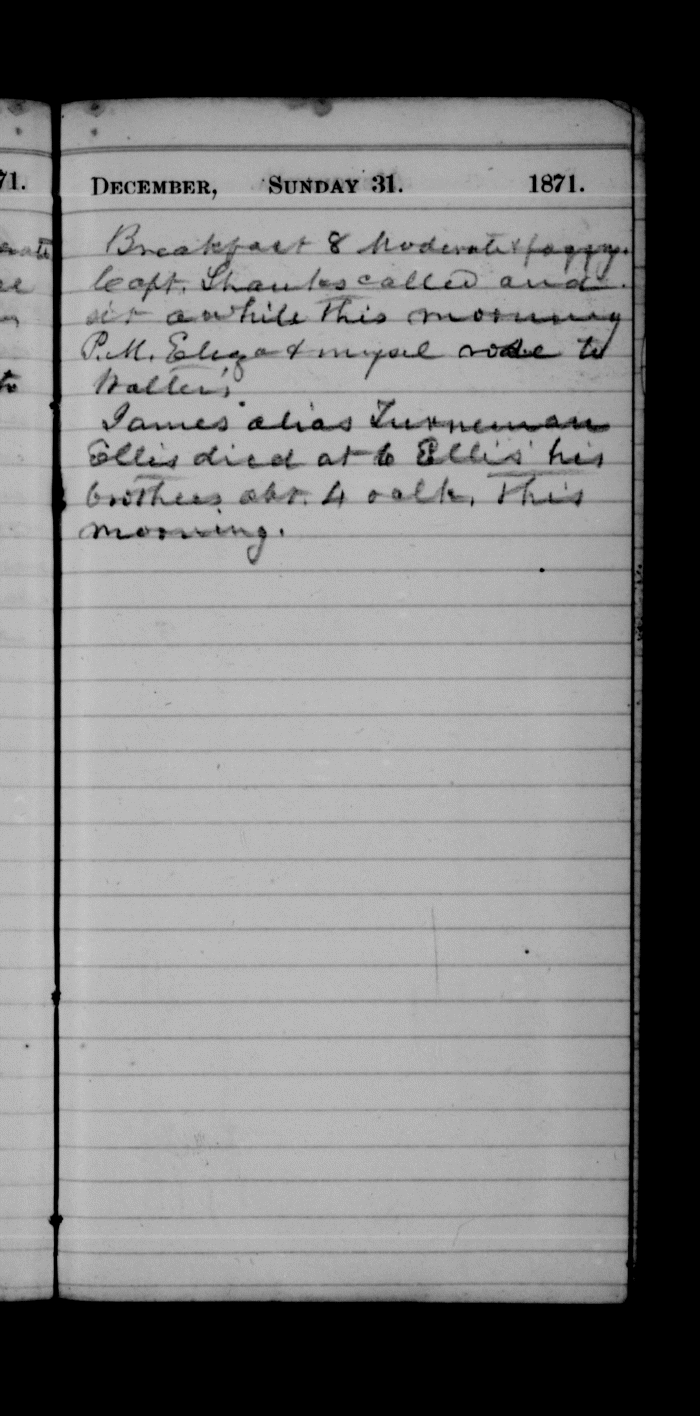 71.
DECEMBER, SUNDAY 31. 1871.
Breakfast 8 Moderate & foggy.
Capt. Shanks called and
sit awhile this morning
P.M. Eliza & mysel rode to
Walter's
James alias Turneman
Ellis died at C Ellis' his
brothers abt. 4 oclk. this
morning.